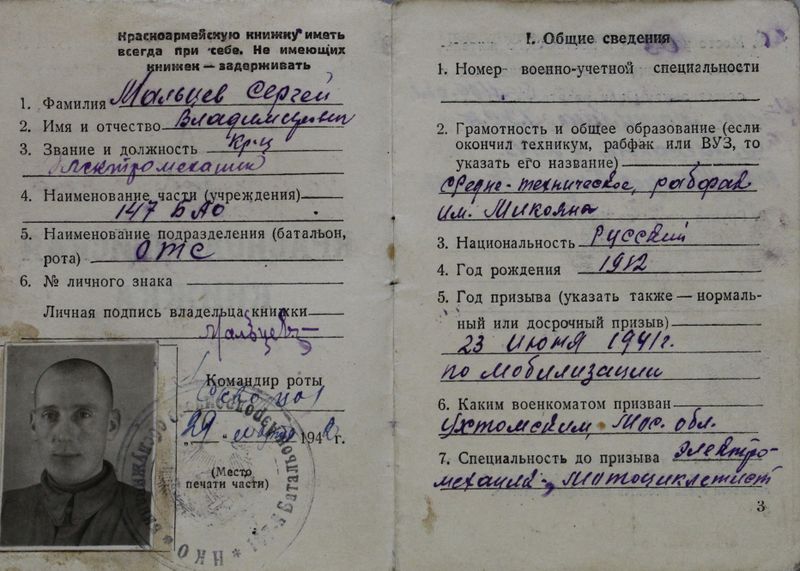 Красноармейскую книжку иметь
всегда при себе. Не имеющих
книжек — задерживать
1. Фамилия Мальцев Сергей
2. Имя и отчество Владимирович
3. Звание и должность Кр-ц
электромеханик
4. Наименование части (учреждения)
147 БАО
5. Наименование подразделения (батальон,
рота) ОТС
6. № личного знака
Личная подпись владельца книжки
Мальцев
Командир роты
29 марта 1942 г.
(Место
печати части)
НКО
I. Общие сведения
1. Номер военно-учетной специальности
2. Грамотность и общее образование (если
окончил техникум, рабфак или ВУЗ, то
указать его название)
Средне-техническое, рабфак
им. Микояна
3. Национальность Русский
4. Год рождения 1912
5. Год призыва (указать также — нормаль-
ный или досрочный призыв)
23 июня 1941 г.
по мобилизации
6. Каким военкоматом призван
Ухтомским Мос. обл.
7. Специальность до призыва Электро-
механик, мотоциклетист
3